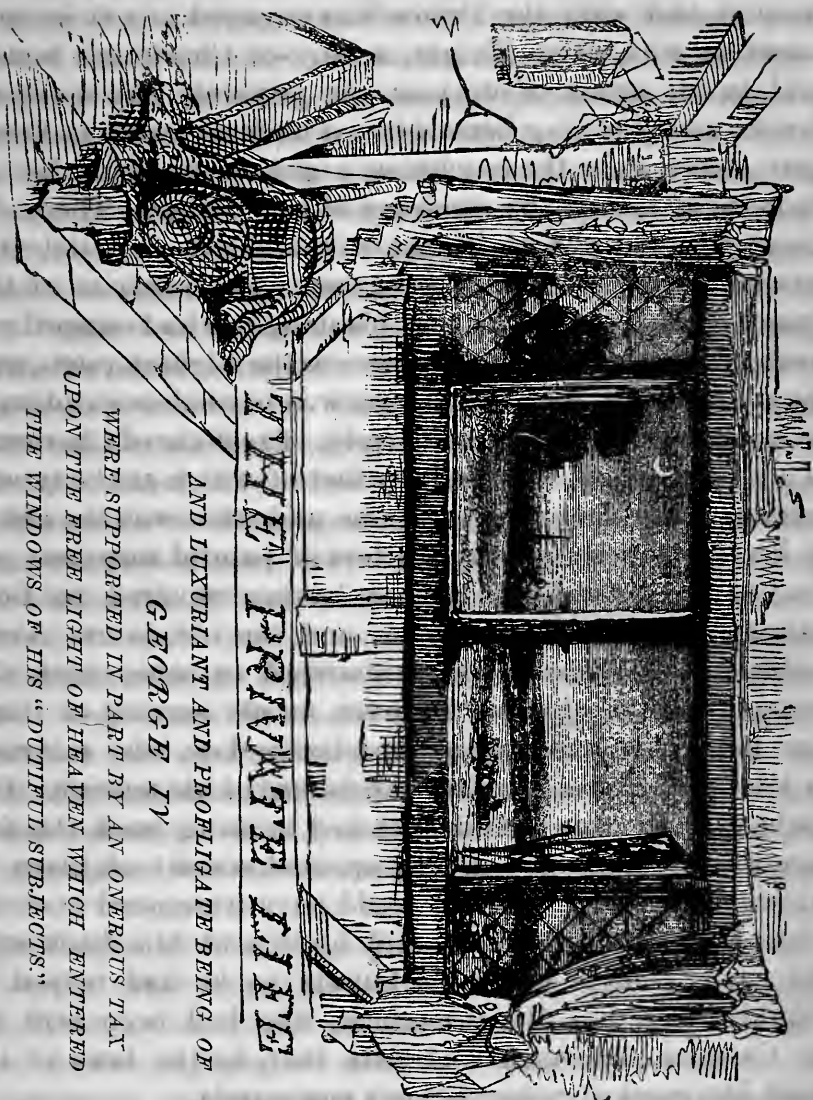 THE PRIVATE LIFE
AND LUXURIANT AND PROFLIGATE BEING OF
GEORGE IV
WERE SUPPORTED IN PART BY AN ONEROUS TAX
UPON THE FREE LIGHT OF HEAVEN WHICH ENTERED
THE WINDOWS OF HIS “DUTIFUL SUBJECTS.”